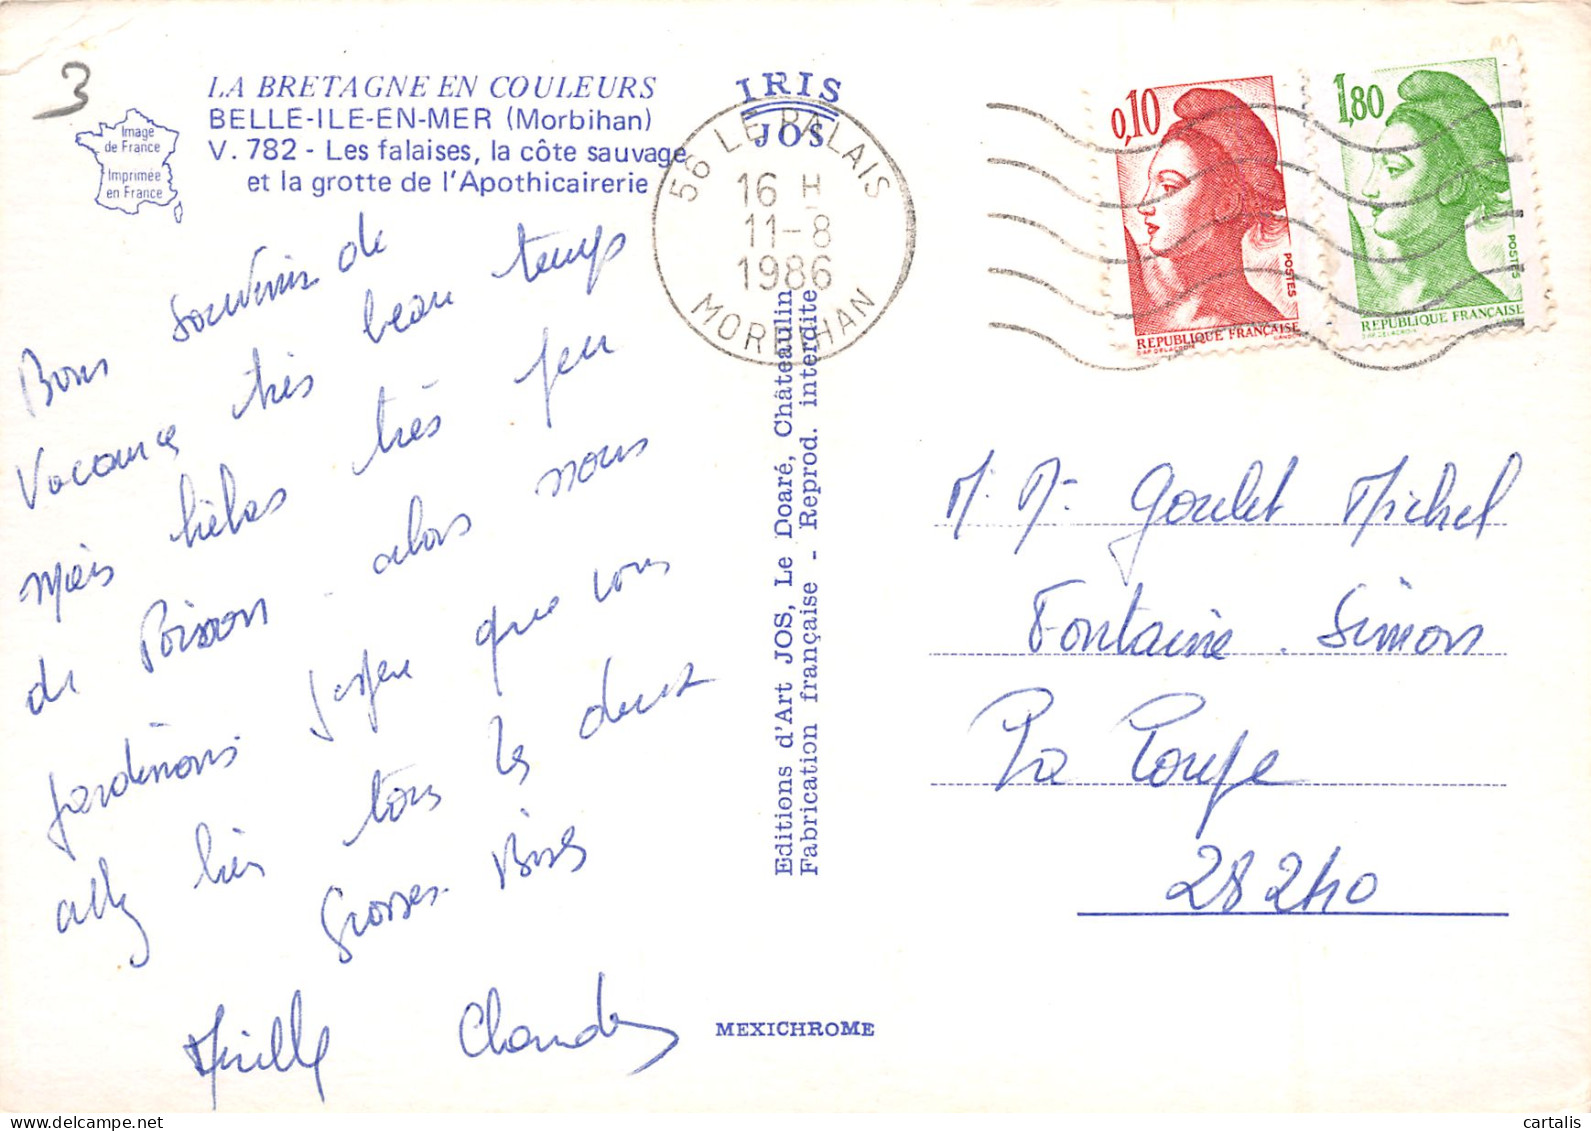 3
LA BRETAGNE EN COULEURS
BELLE-ILE-EN-MER (Morbihan)
V. 782 - Les falaises, la côte sauvage
et la grotte de l'Apothicairerie
Image
de France
Imprimée
en France
IRIS
JOS
56 LE PALAIS
16 H
11-8
1986
MORBIHAN
0,10
POSTES
REPUBLIQUE FRANÇAISE
1,80
POSTES
REPUBLIQUE FRANÇAISE
Bons souvenir de
Vacance très beau temps
Mais hélas très peu
de Poisson alors nous
jardinons j'espère que vous
allez bien tous les deux
Grosses Bises
Mireille Claude
Editions d'Art JOS, Le Doaré, Châteaulin
Fabrication française - Reprod. interdite
MEXICHROME
M. M. Goulet Michel
Fontaine. Simon
La Loupe
28240
cartalis